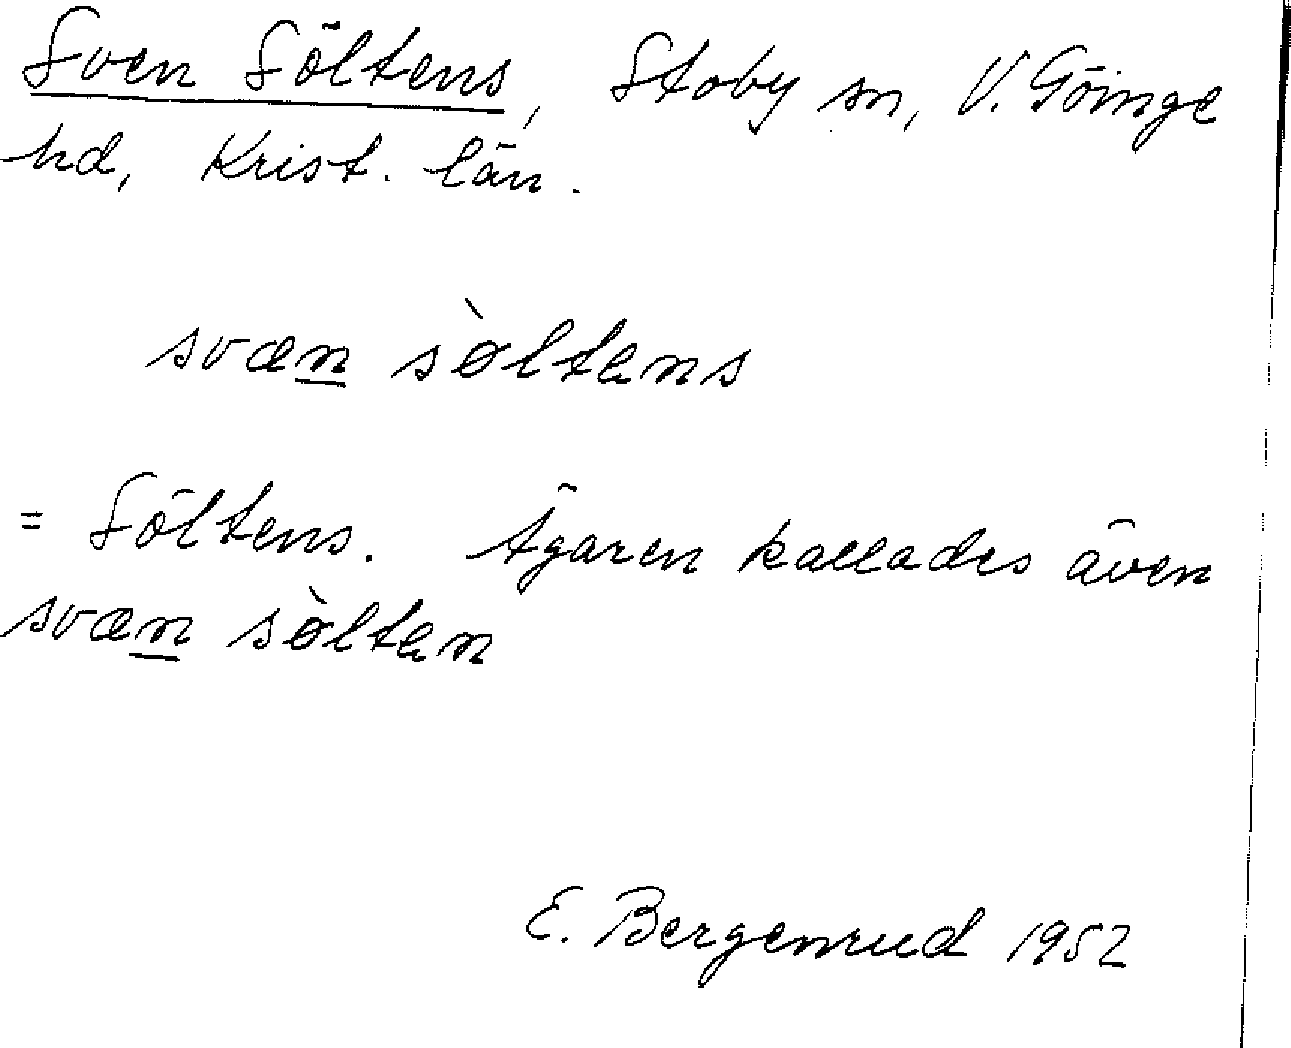 Sven Söltens, Stoby sn, V. Göinge
hd, Krist. län.
svæn sø̀ltens
= Söltens. Ägaren kallades även
svæn sø̀lten
E. Bergenrud 1952